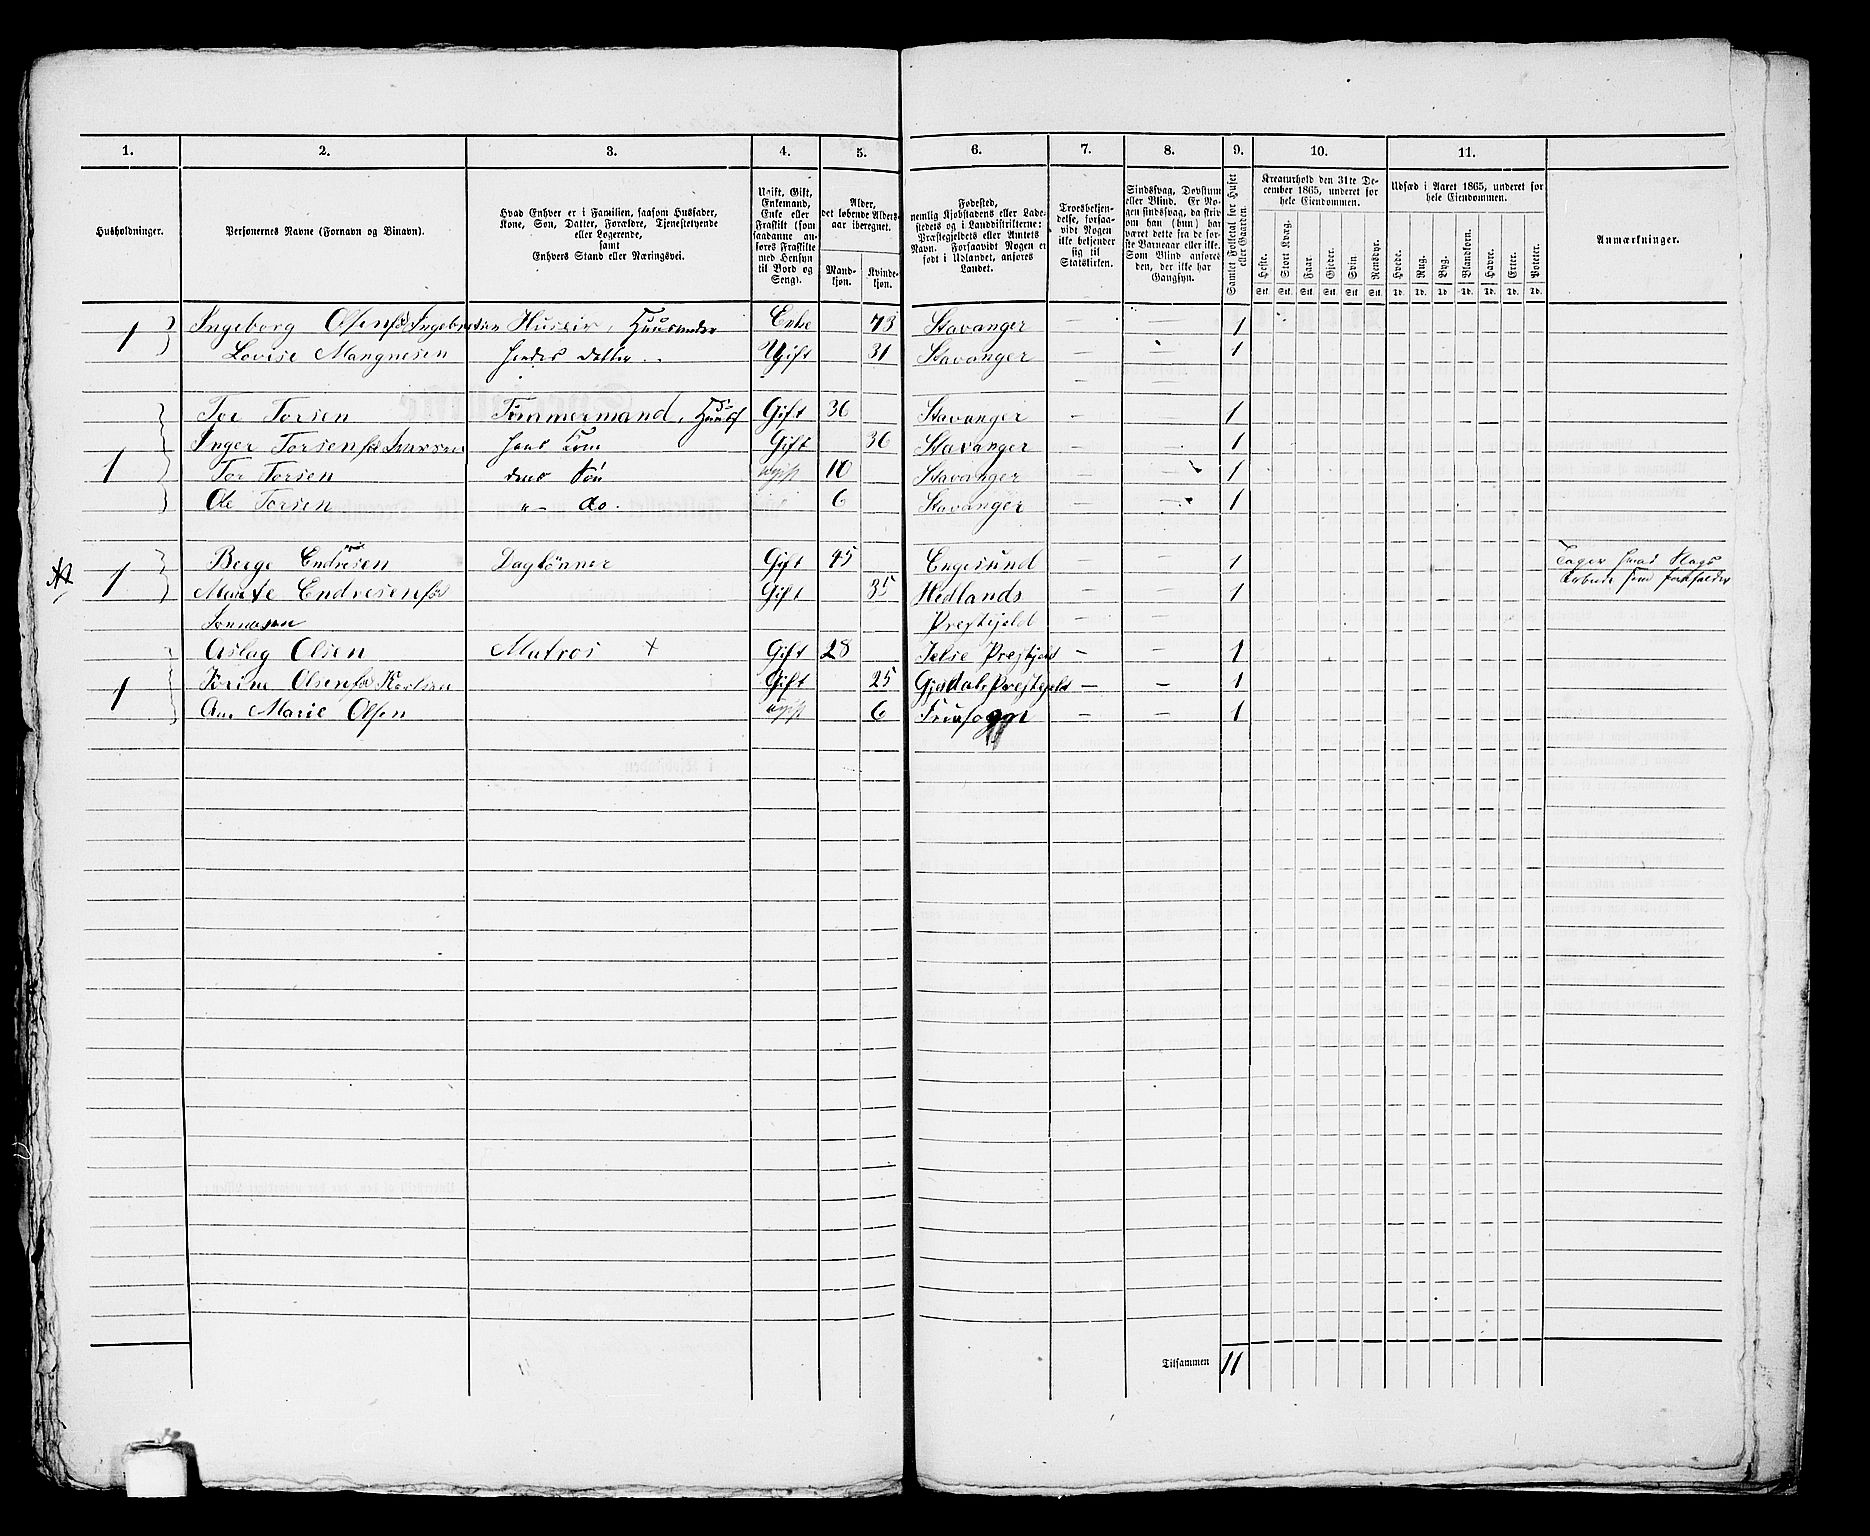 1. 2. 3. 4. 5. 6. 7. 8. 9. 10. 11.
Husholdninger.
Personernes Navne (Fornavn og Binavn).
Hvad Enhver er i Familien, saasom Husfader,
Kone, Søn, Datter, Forældre, Tjenestetyende
eller Logerende,
samt
Enhvers Stand eller Næringsvei.
Ugift, Gift,
Enkemand,
Enke eller
Fraskilt (som
saadanne an-
føres Fraskilte
med Hensyn
til Bord og
Seng).
Alder,
det løbende Alders-
aar iberegnet.
Mand-
kjøn.
Kvinde-
kjøn.
Fødested,
nemlig Kjøbstadens eller Lade-
stedets og i Landdistrikterne:
Præstegjeldets eller Amtets
Navn. Forsaavidt Nogen er
født i Udlandet, anføres
Landet.
Troesbekjen-
delse, forsaa-
vidt Nogen
ikke bekjender
sig til
Statskirken.
Sindssvag, Døvstum
eller Blind. Er No-
gen sindssvag, da skriv
om han (hun) har
været dette fra de før-
ste Barneaar eller ikke.
Som Blind anføres
den, der ikke har
Gangsyn.
Samlet Folketal for Huset
eller Gaarden.
Kreaturhold den 31te De-
cember 1865, underet for
hele Eiendommen.
Heste. Stort Kvæg. Faar. Gjeder. Svin. Rensdyr.
Stk. Stk. Stk. Stk. Stk. Stk.
Udsæd i Aaret 1865, underet for
hele Eiendommen.
Hvede. Rug. Byg. Blandkorn. Havre. Erter. Poteter.
Td. Td. Td. Td. Td. Td. Td.
Anmærkninger.
1 Ingeborg Olsen fød Ingebretsen Huseier, Enke 73 Stavanger — — 1
Lovise Mangnesen hendes datter Ugift 31 Stavanger — — 1
Tor Torsen Tømmermand, Huusf Gift 36 Stavanger — — 1
Inger Torsen fød Gift 36 Stavanger — — 1
1 Tor Torsen deres Søn ugift 10 Stavanger — — 1
Ole Torsen „— do. 6 Stavanger — — 1
1 Berge Endresen Daglønner Gift 45 Engesund — — 1 Tager hvad Slags
Marte Endresen fød Gift 35 Hedlands — — 1 Arbeide som forefalder
Tønnesen Prestgjeld — —
Aslag Olsen Matros + Gift 28 Jelse Prestgjeld — — 1
1 Karine Olsen fød Karlsen Gift 25 Gjsdal Prestgjeld — — 1
Ane Marie Olsen ugift 6 — — 1
Tilsammen 11